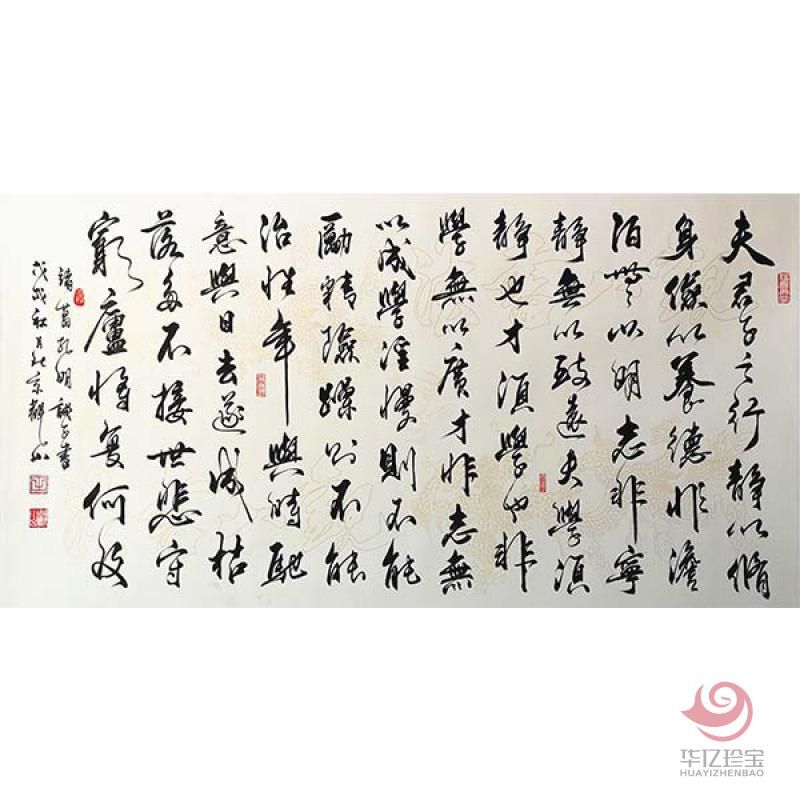 夫君子之行靜以脩
身儉以養德非澹
泊無以明志非寧
靜無以致遠夫學須
靜也才須學也非
學無以廣才非志無
以成學淫慢則不能
勵精險躁則不能
治性年與時馳
意與日去遂成枯
落多不接世悲守
窮廬將复何及
諸葛孔明誡子書
戊戌秋月於京
华亿珍宝
HUAYIZHENBAO